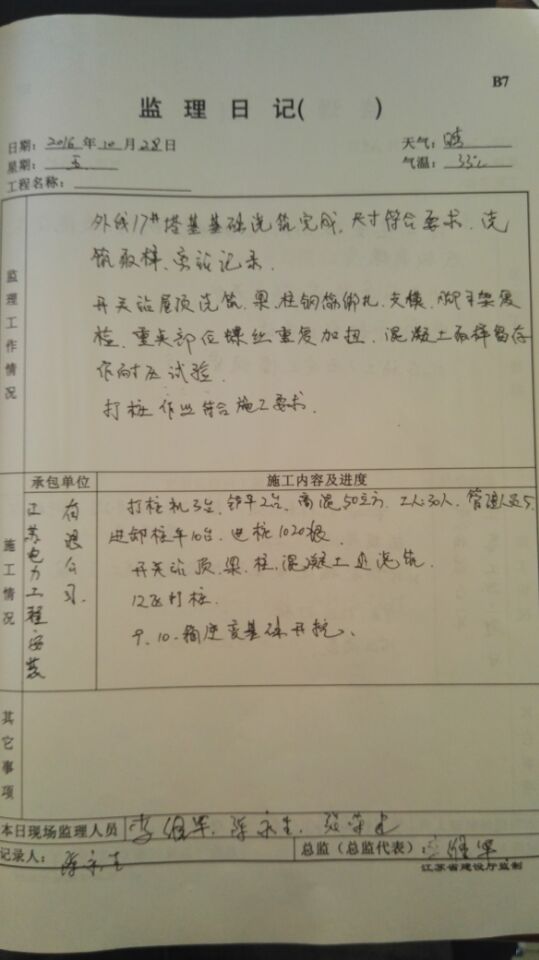 B7
监 理 日 记( )
日期: 2016 年 10 月 28 日
天气: 晴
星期: 五
气温:
工程名称:
监理工作情况
外线17#塔基基础浇筑完成,尺寸符合要求,浇
筑取样,旁站记录.
开关站屋顶浇筑,梁,柱钢筋绑扎,支模,脚手架复
检,重点部位螺丝重复加扭,混凝土取样留存
作耐压试验.
打桩作业符合施工要求.
施工情况
承包单位
施工内容及进度
江苏电力工程安装
有限公司.
打桩机3台,铲车2台,商混50立方,工人30人,管理人员5.
进卸桩车10台,进桩1020根
开关站顶,梁,柱,混凝土浇筑.
12区打桩.
9、10.箱逆变基础开挖.
其它事项
本日现场监理人员
记录人:
总监(总监代表):
江苏省建设厅监制